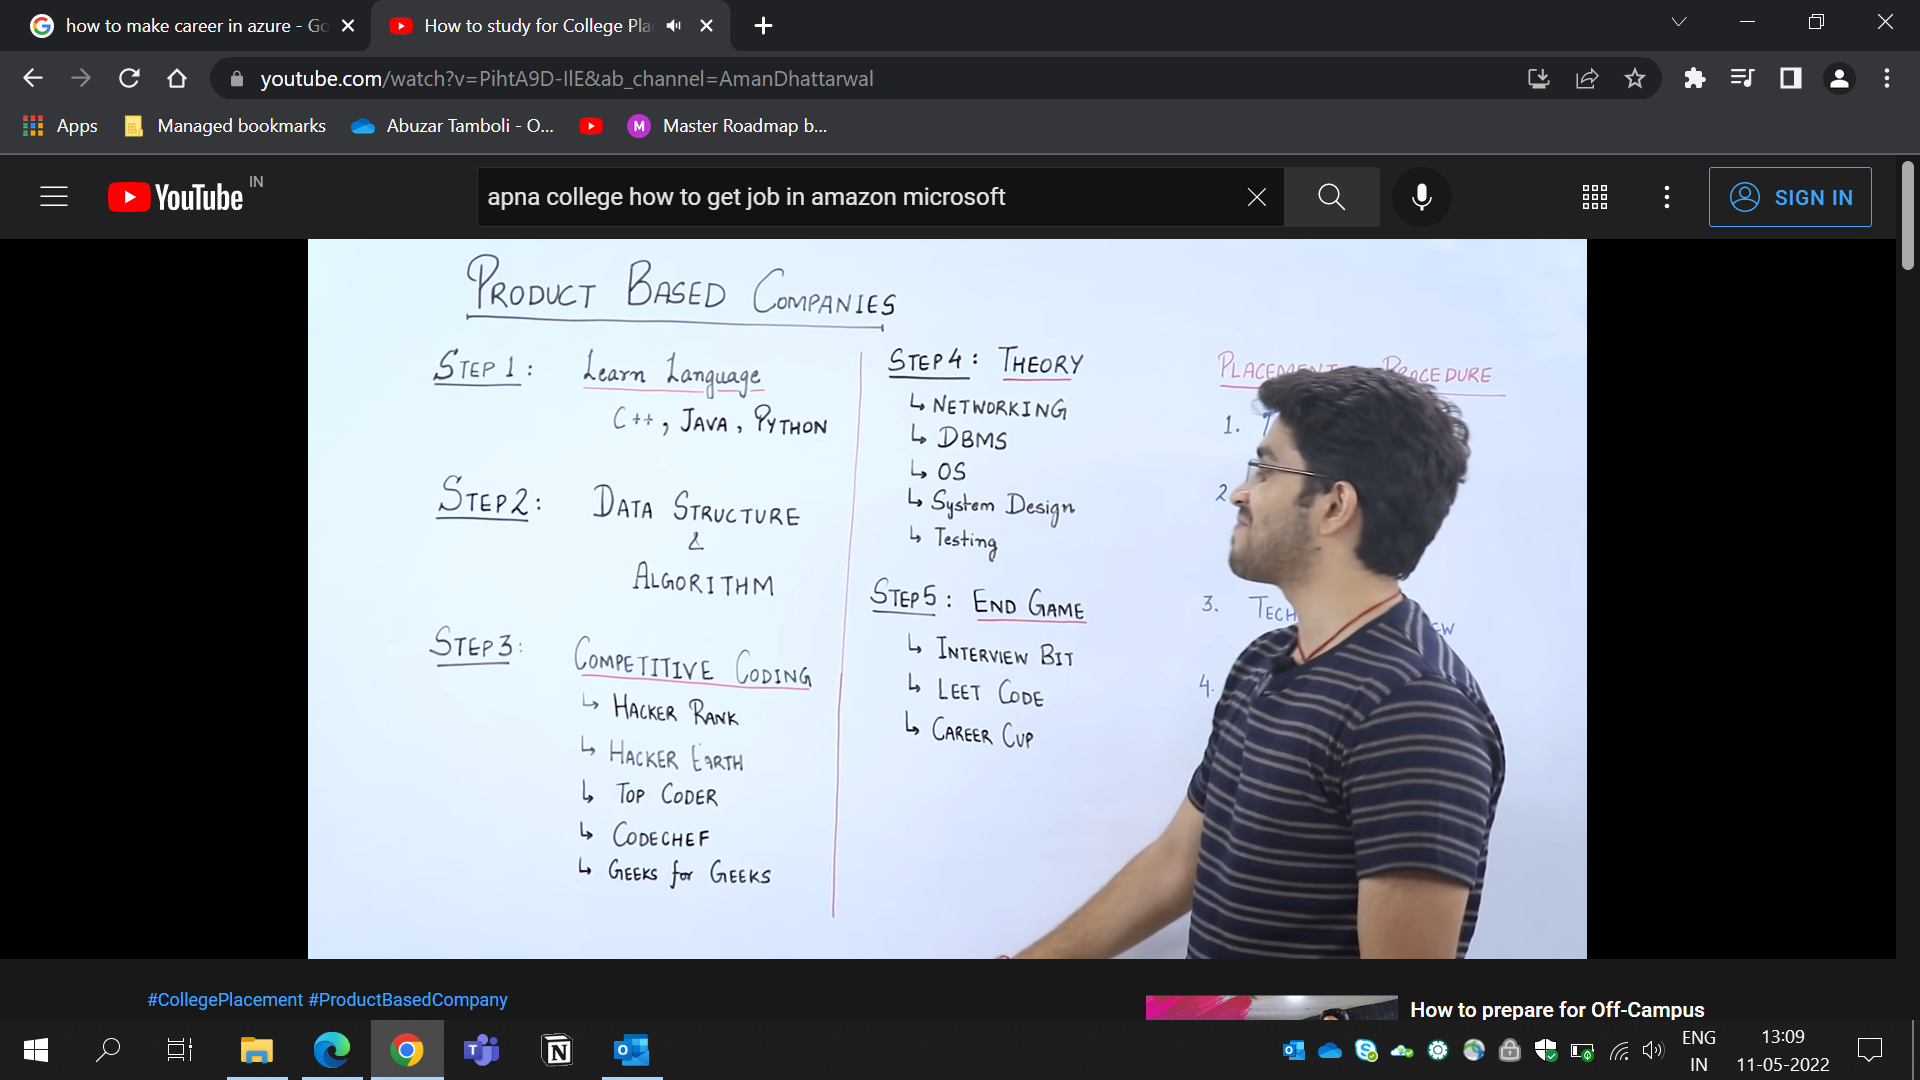 how to make career in azure - Go
How to study for College Pla
youtube.com/watch?v=PihtA9D-IlE&ab_channel=AmanDhattarwal
Apps
Managed bookmarks
Abuzar Tamboli - O...
M
Master Roadmap b...
YouTube IN
apna college how to get job in amazon microsoft
SIGN IN
PRODUCT BASED COMPANIES
STEP 1: Learn Language
C++, JAVA, PYTHON
STEP2: DATA STRUCTURE
&
ALGORITHM
STEP3: COMPETITIVE CODING
↳ HACKER RANK
↳ HACKER EARTH
↳ TOP CODER
↳ CODECHEF
↳ GEEKS for GEEKS
STEP4: THEORY
↳ NETWORKING
↳ DBMS
↳ OS
↳ System Design
↳ Testing
STEP5: END GAME
↳ INTERVIEW BIT
↳ LEET CODE
↳ CAREER CUP
PLACEMENT PROCEDURE
1.
2
3. TECH
4.
#CollegePlacement #ProductBasedCompany
How to prepare for Off-Campus
ENG
IN
13:09
11-05-2022